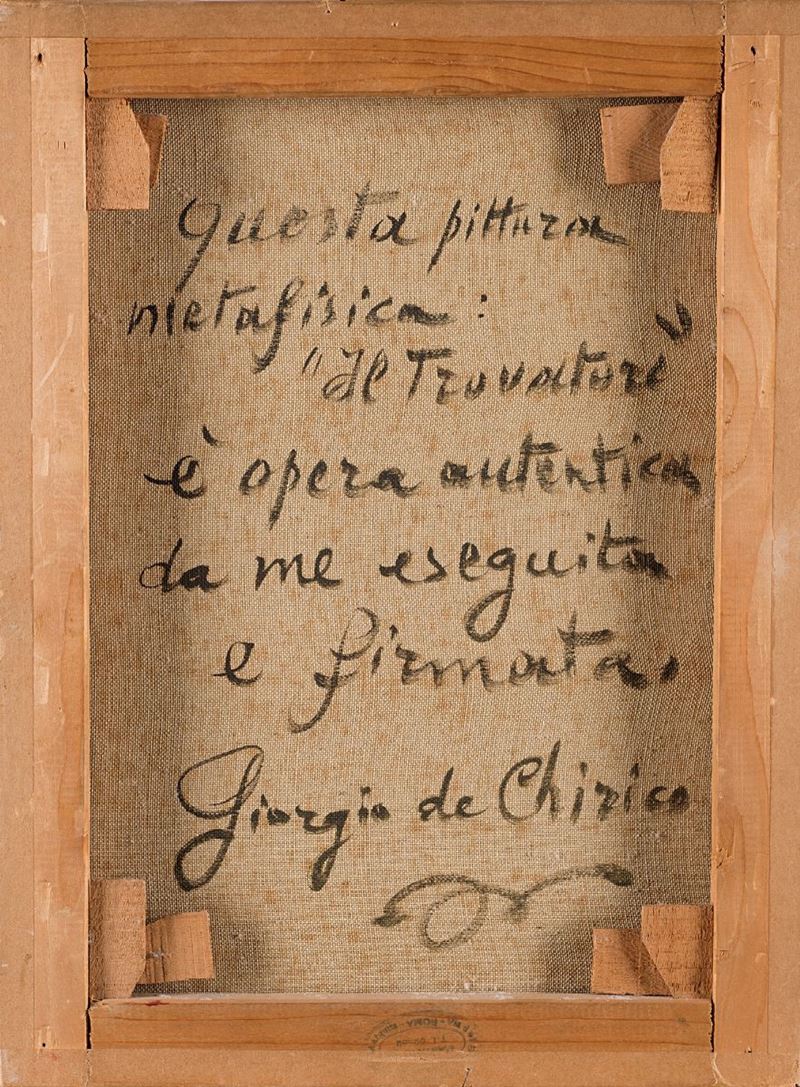 Questa pittura
metafisica:
"Il Trovatore"
è opera autentica
da me eseguita
e firmata.
Giorgio de Chirico
ROMA